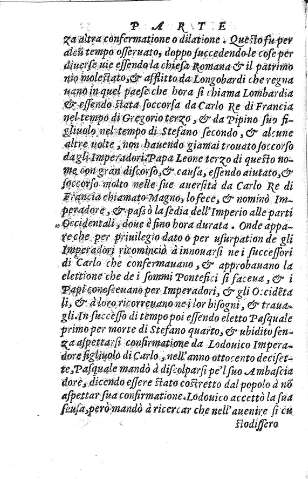 PARTE
za altra confermatione o dilatione. Questo fu per
alcū tempo osseruato, doppo succedendo le cose per
diuerse uie essendo la chiesa Romana & il patrimo
nio molestato, & afflitto da Longobardi che regna
uano in quel paese che hora si chiama Lombardia
& essendo stata soccorsa da Carlo Re di Francia
nel tempo di Gregorio terzo, & da Pipino suo fi=
gliuolo nel tempo di Stefano secondo, & alcune
altre uolte, non hauendo giamai trouato soccorso
dagli Imperadori. Papa Leone terzo di questo no=
me con gran discorso, & causa, essendo aiutato, &
soccorso molto nelle sue auersità da Carlo Re di
Francia chiamato Magno, lo fece, & nominò Im=
peradore, & passò la sedia dell'Imperio alle parti
Occidentali, doue è fino hora durata. Onde appa=
re che per priuilegio dato o per usurpation de gli
Imperadori ricominciò à innouarsi ne i successori
di Carlo che confermauano, & approbauano la
elettione che de i sommi Pontefici si faceua, & i
Papi conosceuano per Imperadori, & gli Occidēta
li, & à loro ricorreuano nei lor bisogni, & traua=
gli. In successo di tempo poi essendo eletto Pasquale
primo per morte di Stefano quarto, & ubidito sen=
za aspettarsi confirmatione da Lodouico Impera=
dore figliuolo di Carlo, nell'anno ottocento diciset=
te, Pasquale mandò à discolparsi pe'l suo Ambascia
dore, dicendo essere stato costretto dal popolo à nō
aspettar sua confirmatione. Lodouico accettò la sua
scusa, però mandò à ricercar che nell'auenire si cu
stodissero